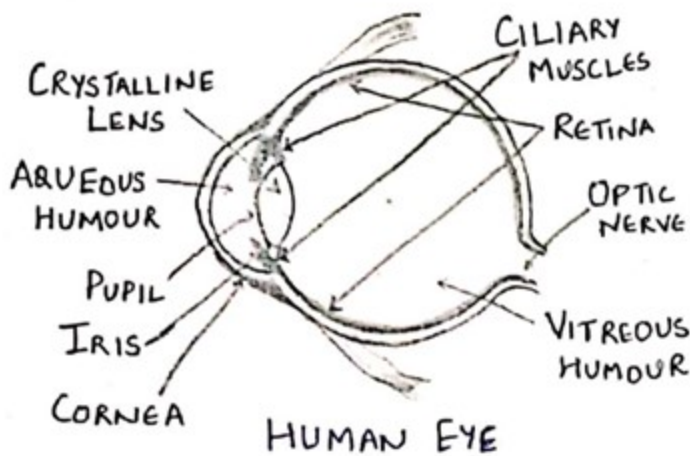 CRYSTALLINE
LENS
AQUEOUS
HUMOUR
PUPIL
IRIS
CORNEA
CILIARY
MUSCLES
RETINA
OPTIC
NERVE
VITREOUS
HUMOUR
HUMAN EYE